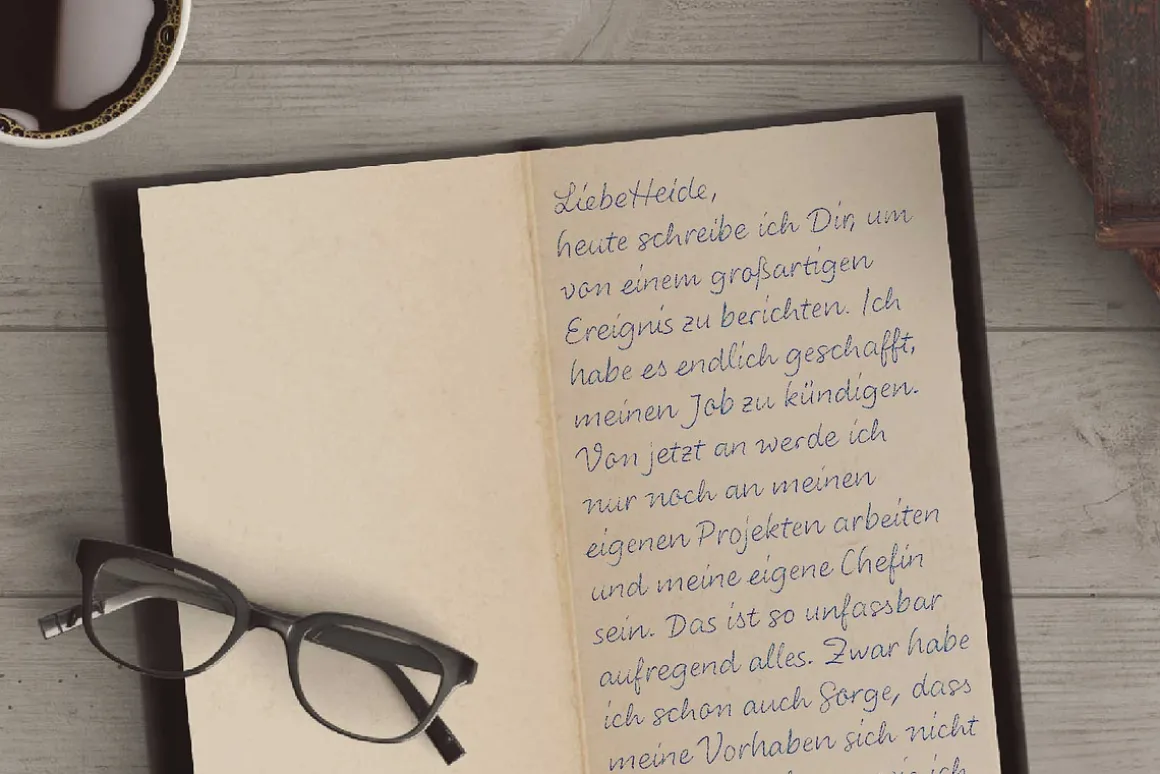 Liebe Heide,
heute schreibe ich Dir, um
von einem großartigen
Ereignis zu berichten. Ich
habe es endlich geschafft,
meinen Job zu kündigen.
Von jetzt an werde ich
nur noch an meinen
eigenen Projekten arbeiten
und meine eigene Chefin
sein. Das ist so unfassbar
aufregend alles. Zwar habe
ich schon auch Sorge, dass
meine Vorhaben sich nicht
ich